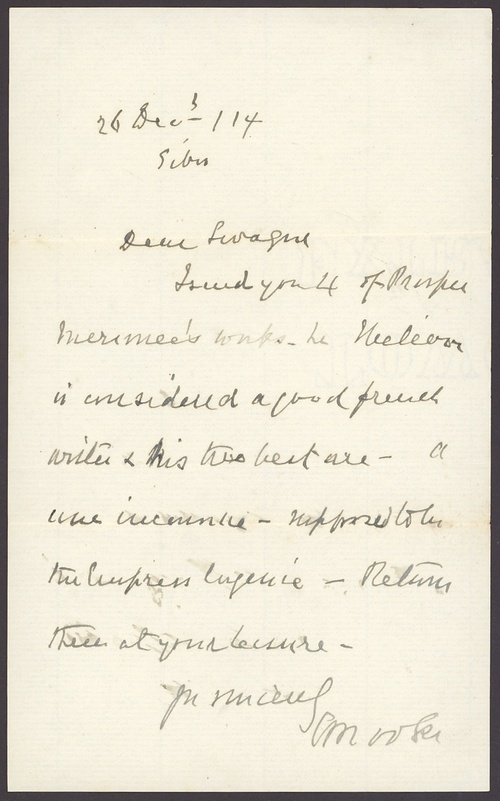 26 Decr /14
Sibu
Dear Swayne
I send you 4 of Prosper
Merimee's works - he
is considered a good french
writer & his two best are - a
une inconnue - supposed to be
the Empress Eugenie - Return
them at your leisure -
yrs sincerely
C Brooke